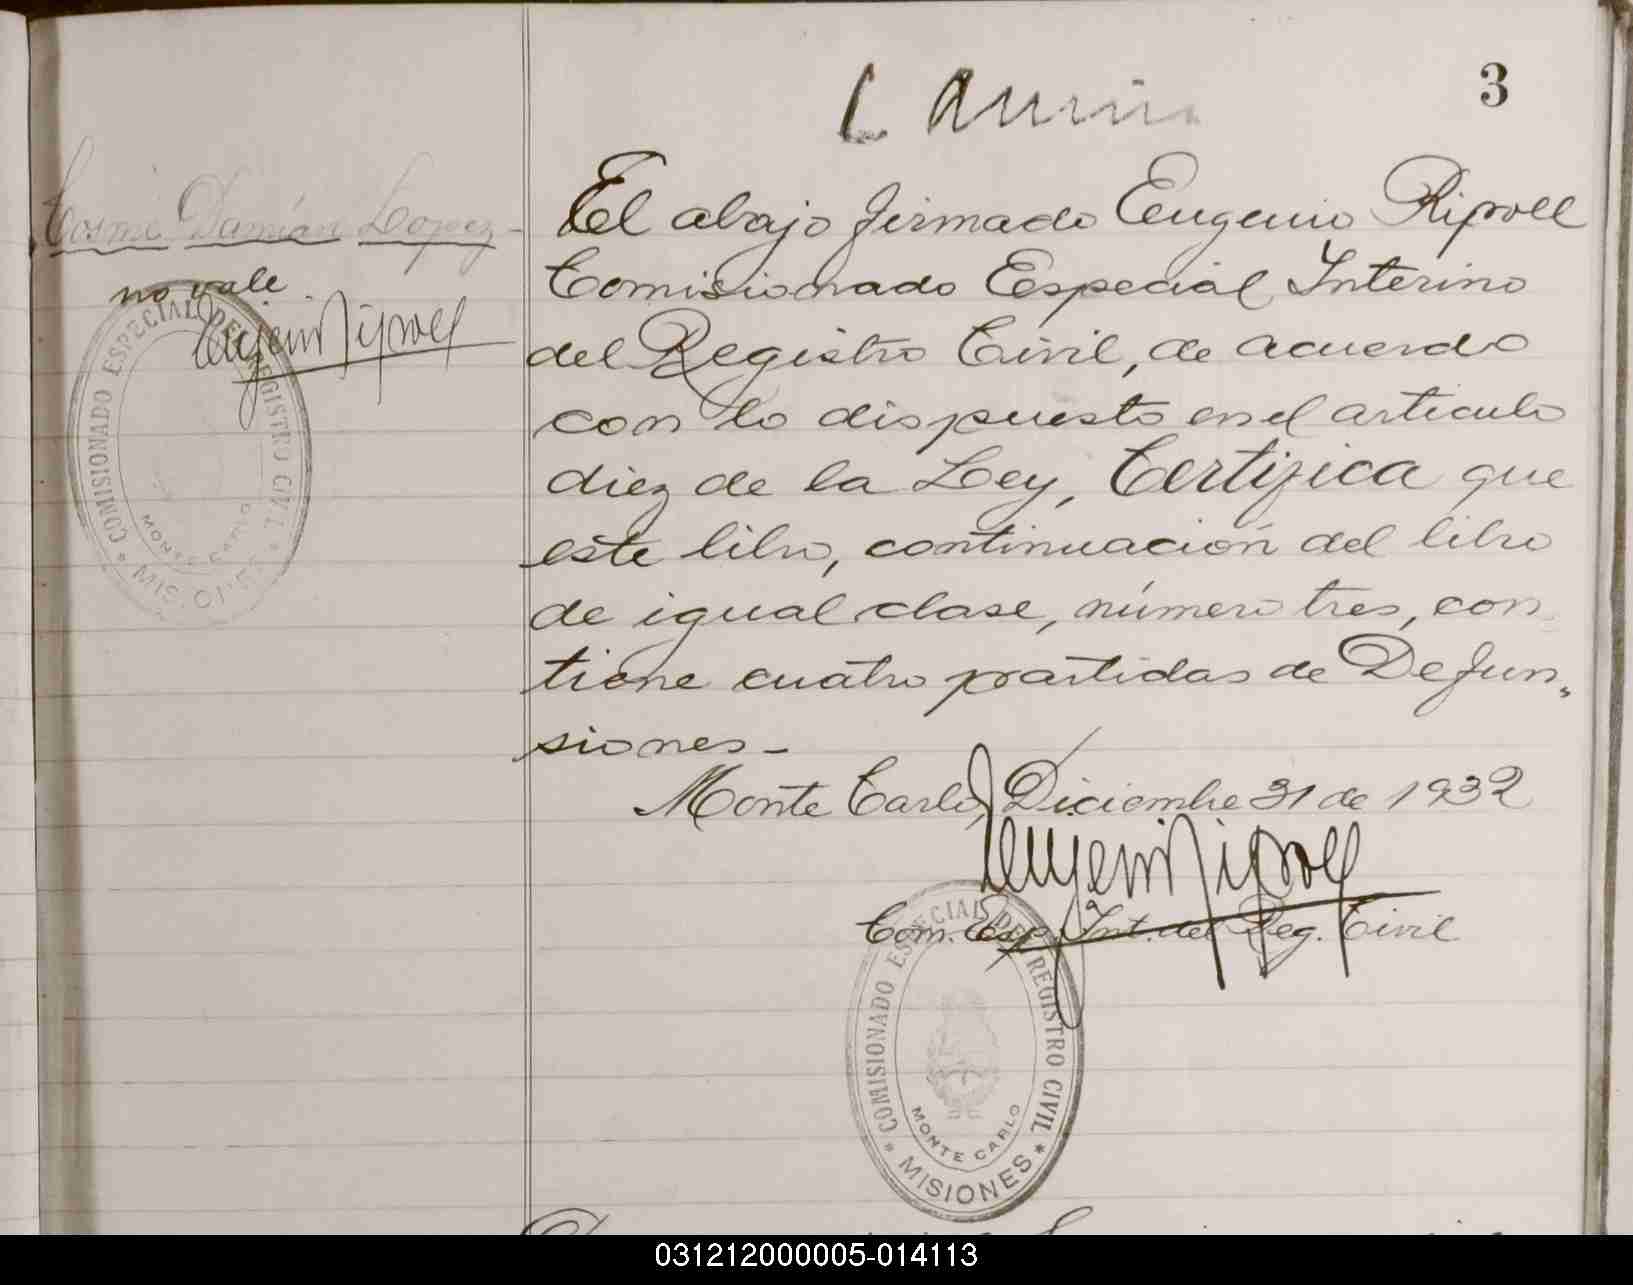 3
Cosme Damián Lopez-
no vale
Eugenio Ripoll
* COMISIONADO ESPECIAL DEL REGISTRO CIVIL *
MONTE CARLO
MISIONES
El abajo firmado Eugenio Ripoll
Comisionado Especial Interino
del Registro Civil, de acuerdo
con lo dispuesto en el articulo
diez de la Ley, Certifica que
este libro, continuación del libro
de igual clase, número tres, con
tiene cuatro partidas de Defun-
siones-
Monte Carlo, Diciembre 31 de 1932
Eugenio Ripoll
Com. Esp. Int. del Reg. Civil
* COMISIONADO ESPECIAL DEL REGISTRO CIVIL *
MONTE CARLO
MISIONES
031212000005-014113